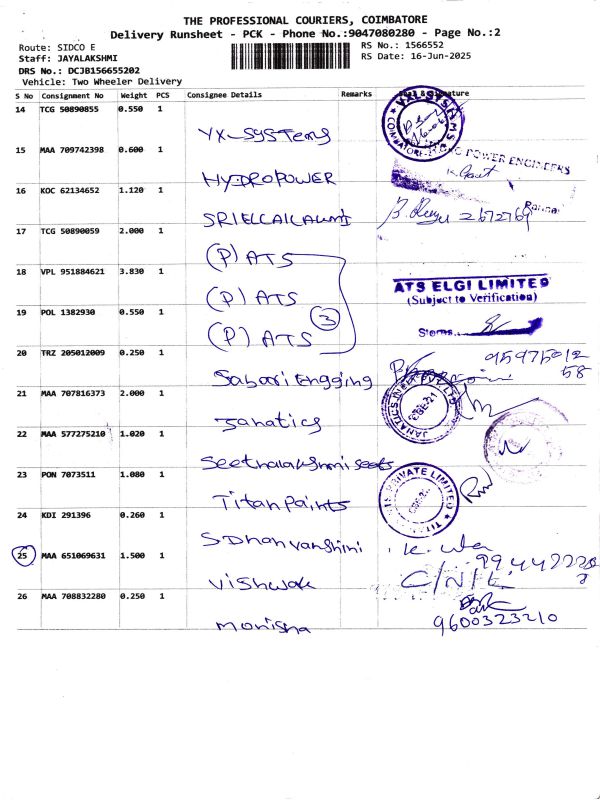 THE PROFESSIONAL COURIERS, COIMBATORE
Delivery Runsheet - PCK - Phone No.:9047080280 - Page No.:2
Route: SIDCO E
RS No.: 1566552
Staff: JAYALAKSHMI
RS Date: 16-Jun-2025
DRS No.: DCJB156655202
Vehicle: Two Wheeler Delivery
S No Consignment No Weight PCS Consignee Details Remarks Signature
14 TCG 50890855 0.550 1
YX-SYSTEMS
15 MAA 709742398 0.600 1
HYDROPOWER
POWER ENGINEERS
16 KOC 62134652 1.120 1
2672769
17 TCG 50890059 2.000 1
(P) ATS
18 VPL 951884621 3.830 1
(P) ATS
ATS ELGI LIMITED
(Subject to Verification)
19 POL 1382930 0.550 1
(P) ATS
3
Stores
20 TRZ 205012009 0.250 1
9597501258
Sabari Engging
21 MAA 707816373 2.000 1
Janatics
22 MAA 577275210 1.020 1
Seethalakshmi seets
23 PON 7073511 1.080 1
Titan Paints
PRIVATE LIMITED
24 KDI 291396 0.260 1
S Dhanvanshini
25 MAA 651069631 1.500 1
Vishwak
26 MAA 708832280 0.250 1
9600323210
Monisha